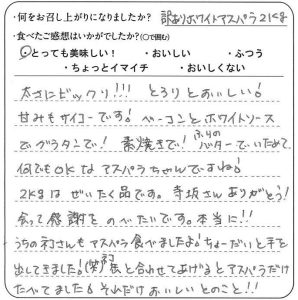 ・何をお召し上がりになりましたか? 訳ありホワイトアスパラ2Kg
・食べたご感想はいかがでしたか?(○で囲む)
・とっても美味しい! ・おいしい ・ふつう
・ちょっとイマイチ ・おいしくない
太さにビックリ!!! とろりとおいしい!
甘みもサイコーです! ベーコンとホワイトソース
でグラタンで! 素焼きで! ふりのバターでいためて
何でもOKなアスパラちゃんですね!
2Kgはぜいたく品です。寺坂さんありがとう!
会って感謝をのべたいです。本当に!!
うちの初さんもアスパラ食べましたよ!ちょーだいと手を
出してきました!(笑) と合わせてあげるとアスパラだけ
たべてました!それだけおいしいとのこと!!